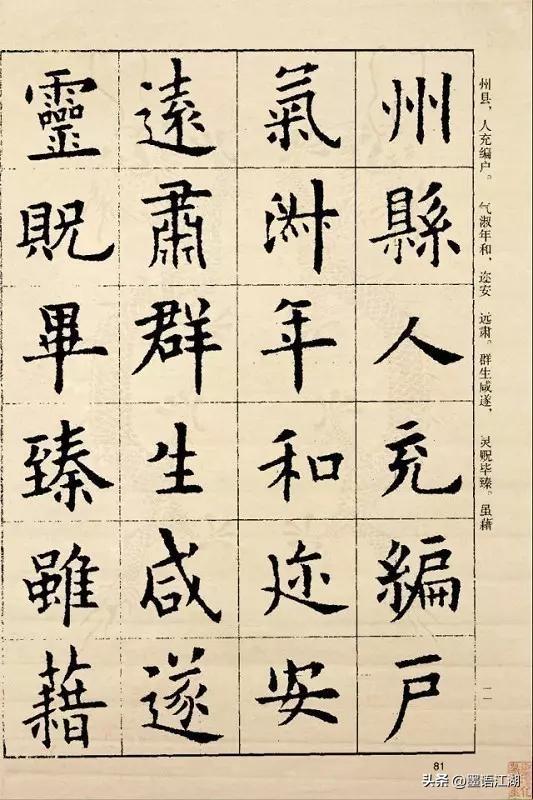 州縣人充編戶
氣淋年和迩安
遠肅群生咸遂
靈貺畢臻雖藉
州县，人充编户。 气淑年和，迩安 远肃。群生咸遂， 灵贶毕臻。虽藉
一一
81
头条 @墨语江湖